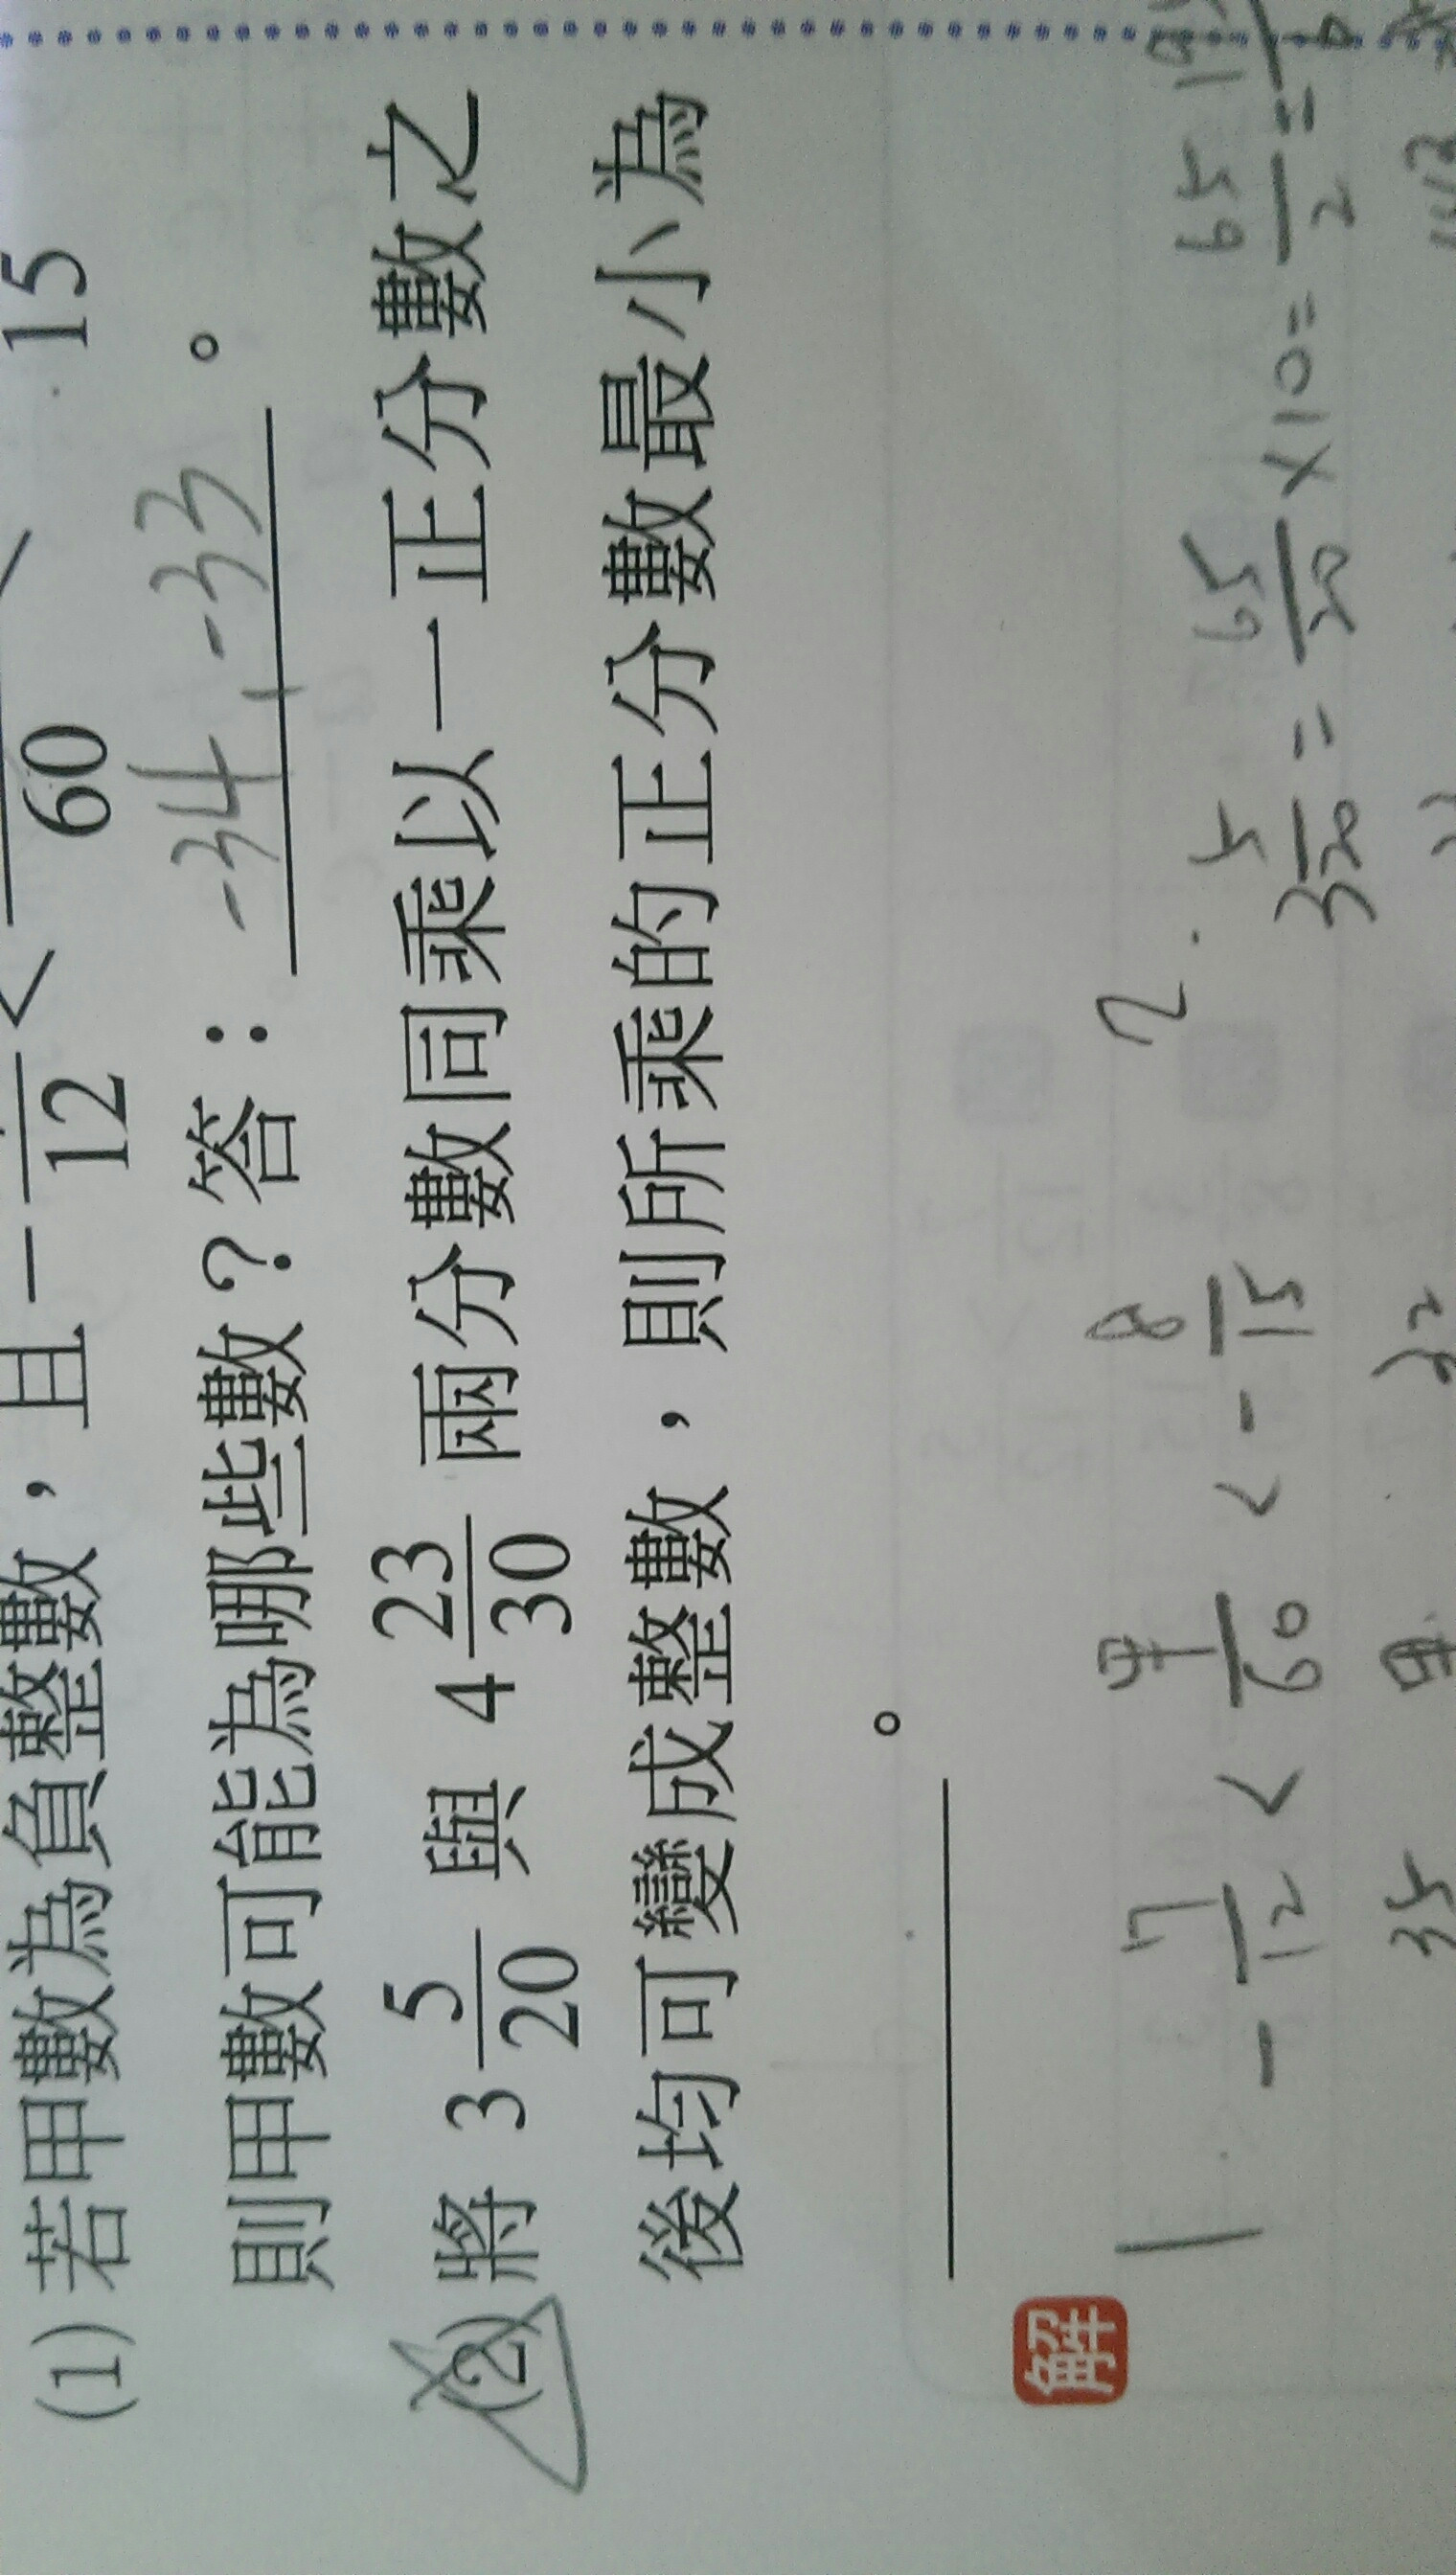 (1) 若甲數為負整數，且 - /12 < /60 < 15
則甲數可能為哪些數？答：-34, -33。
(2) 將 3 5/20 與 4 23/30 兩分數同乘以一正分數之
後均可變成整數，則所乘的正分數最小為
。
解
1 - 7/12 < 甲/60 < - 8/15
2. 3 5/20 = 65/20 × 10 = 65/2 =
35